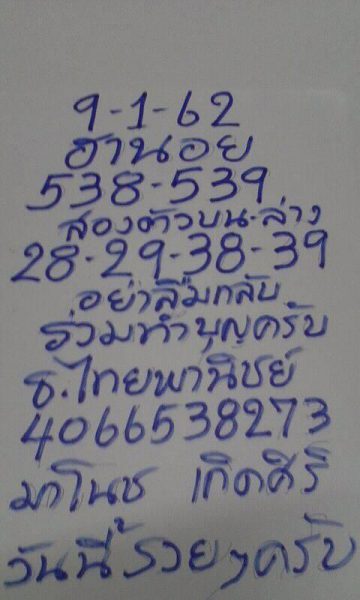 9-1-62
ฮานอย
538-539
สองตัวบน-ล่าง
28-29-38-39
อย่าลืมกลับ
ร่วมทำบุญครับ
ธ.ไทยพานิชย์
4066538273
มาโนช เกิดศิริ
วันนี้รวยๆครับ